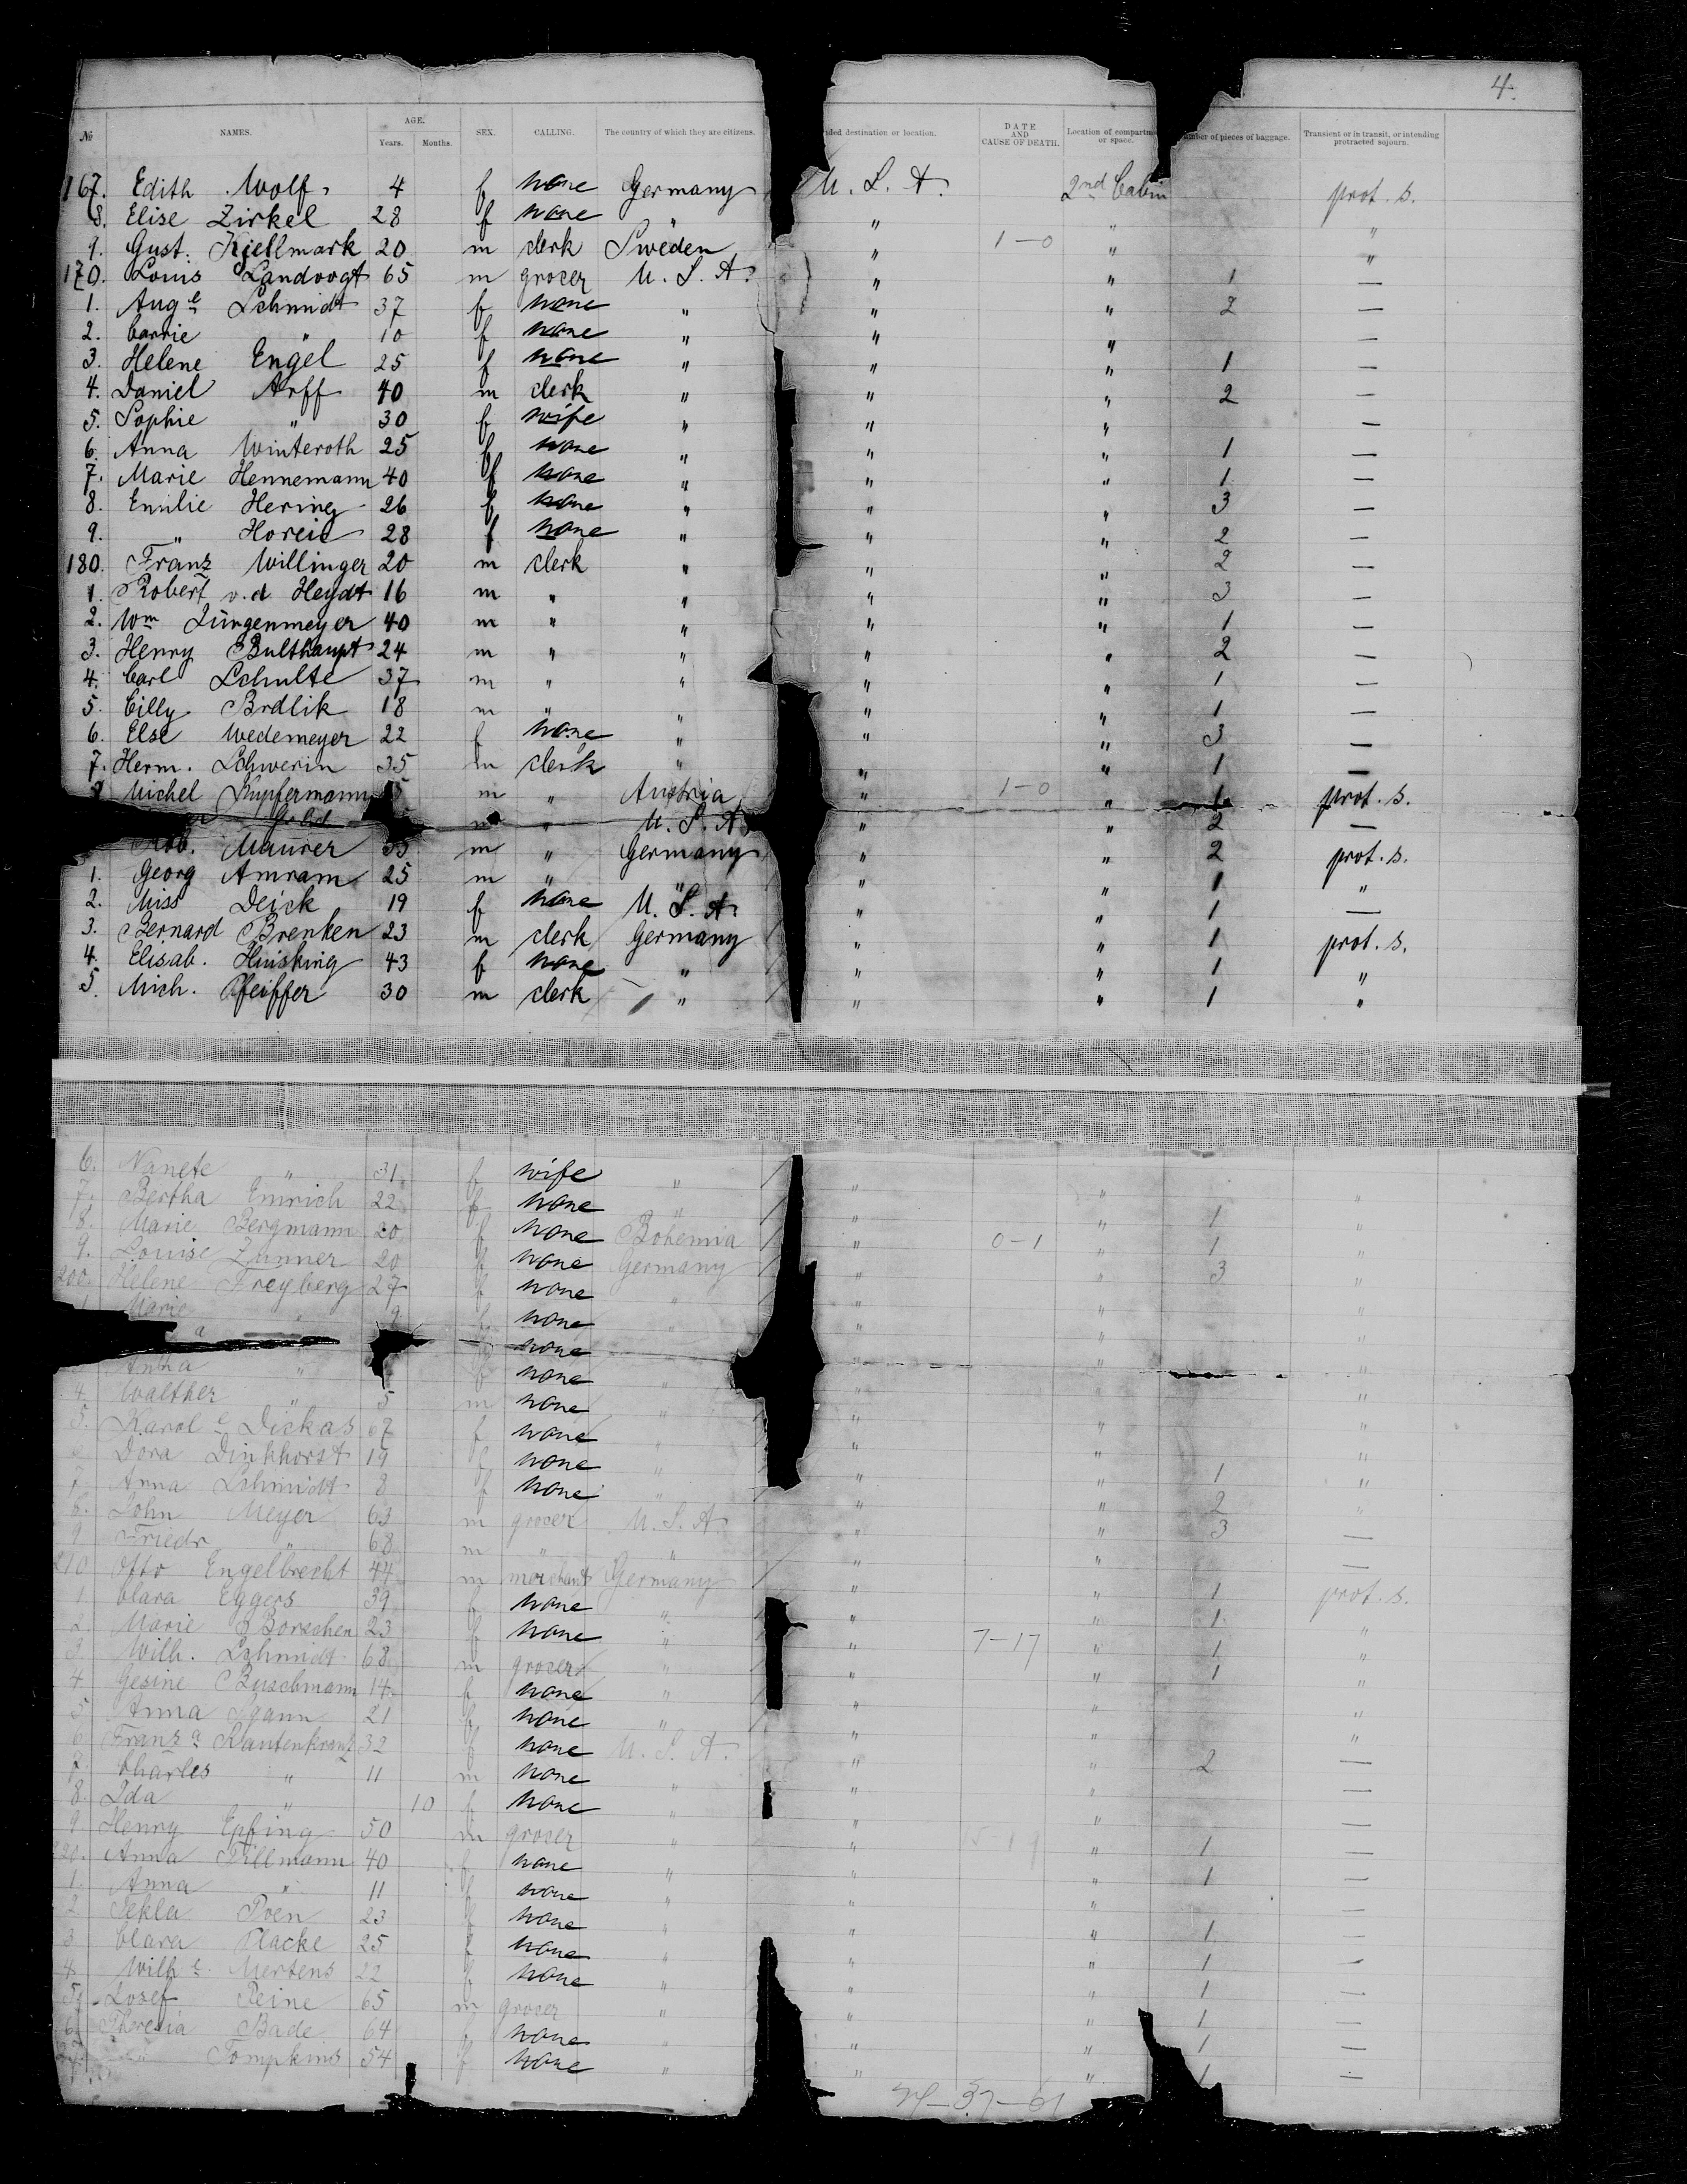 4.
№ NAMES. AGE. Years. Months. SEX. CALLING. The country of which they are citizens. ded destination or location. DATE AND CAUSE OF DEATH. Location of compartm or space. umber of pieces of baggage. Transient or in transit, or intending protracted sojourn.
167. Edith Wolf. 4 f none Germany U. S. A. 2nd Cabin prot. s.
8. Elise Zirkel 28 f none " " " "
9. Gust. Kjellmark 20 m clerk Sweden " 1-0 " "
170. Louis Landvogt 65 m grocer U. S. A. " " 1 —
1. Auge Schmidt 37 f none " " " 2 —
2. Carrie " 10 f none " " " —
3. Helene Engel 25 f none " " " 1 —
4. Daniel Arff 40 m clerk " " " 2 —
5. Sophie " 30 f wife " " " —
6. Anna Winteroth 25 f none " " " 1 —
7. Marie Hennemann 40 f none " " " 1 —
8. Emilie Hering 26 f none " " " 3 —
9. " Horeis 28 f none " " " 2 —
180. Franz Willinger 20 m clerk " " " 2 —
1. Robert v. d Heydt 16 m " " " " 3 —
2. Wm Jüngenmeyer 40 m " " " " 1 —
3. Henry Bulthaupt 24 m " " " " 2 —
4. Carl Schulte 37 m " " " " 1 —
5. Cilly Brdlik 18 m " " " " 1 —
6. Else Wedemeyer 22 f none " " " 3 —
7. Herm. Schwerin 35 m clerk " " " 1 —
Michel Kupfermann m " Austria " 1-0 " 1 prot. s.
m " U. S. A. " " 2 —
Rob. Maurer 35 m " Germany " " 2 prot. s.
1. Georg Amram 25 m " " " " 1 "
2. Miss Deick 19 f none U. S. A. " " 1 —
3. Bernard Brenken 23 m clerk Germany " " 1 prot. s.
4. Elisab. Huisking 43 f none " " " 1 "
5. Mich. Pfeiffer 30 m clerk " " " 1 "
6. Nanete " 31 f wife " " " "
7. Bertha Emrich 22 f none " " " 1 "
8. Marie Bergmann 20 f none Bohemia " 0-1 " 1 "
9. Louise Zunner 20 f none Germany " " 3 "
200. Helene Freyberg 27 f none " " " "
1 Marie " 9 f none " " " "
a none " " "
Anna " f none " " " "
4. Walther " 5 m none " " " "
5. Karole Dickas 67 f none " " " "
Dora Dinkhorst 19 f none " " " 1 "
7. Anna Schmidt 8 f none " " " 2 "
8. John Meyer 63 m grocer U. S. A. " " 3 —
9 Friedr " 68 m " " " " —
210 Otto Engelbrecht 44 m merchant Germany " " 1 prot. s.
1. Clara Eggers 39 f none " " " 1 "
2. Marie Borschen 23 f none " " 7-17 " 1 "
3. Wilh. Schmidt 68 m grocer " " " 1 "
4 Gesine Buschmann 14 f none " " " "
5 Anna Sgann 21 f none " " " "
6 Franza Rautenkranz 32 f none U. S. A. " " 2 —
7. Charles " 11 m none " " " —
8. Ida " 10 f none " " " —
9 Henry Epfing 50 m grocer " " " 1 —
220. Anna Tillmann 40 f none " " " 1 —
1. Anna " 11 f none " " " —
2 Tekla Poen 23 f none " " " 1 —
3 Clara Placke 25 f none " " " 1 —
4. Wilhe. Mertens 22 f none " " " 1 —
5. Josef Peine 65 m grocer " " " 1 —
6. Theresia Bade 64 f none " " " 1 —
Tompkins 54 f none " " " 1 —